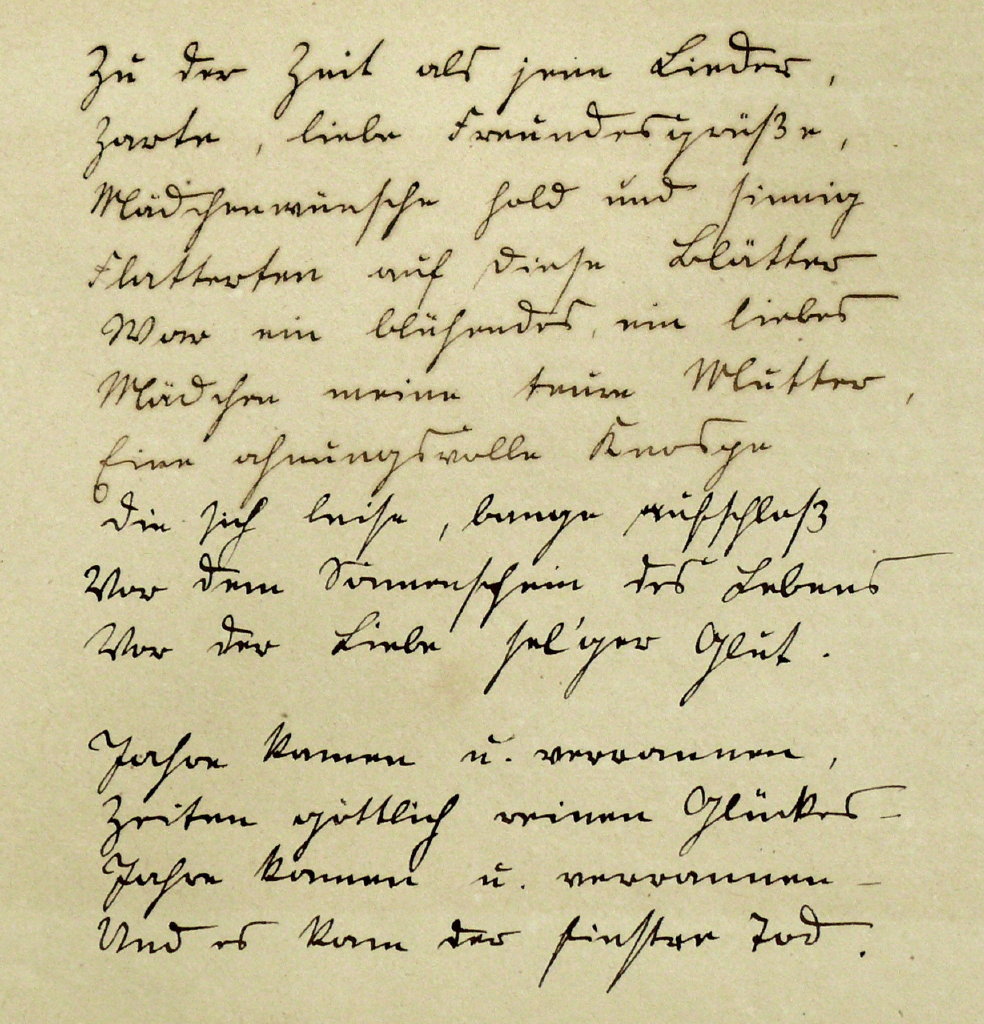 Zu der Zeit als jene Lieder,
Zarte, liebe Freundesgrüße,
Mädchenwünsche hold und sinnig
Flatterten auf diese Blätter
War ein blühendes, ein liebes
Mädchen meine teure Mutter,
Eine ahnungsvolle Knospe
Die sich leise, bange aufschloß
Vor dem Sonnenschein des Lebens
Vor der Liebe sel'ger Glut.
Jahre kamen u. verrannen,
Zeiten göttlich reinen Glückes –
Jahre kamen u. verrannen –
Und es kam der finstre Tod.